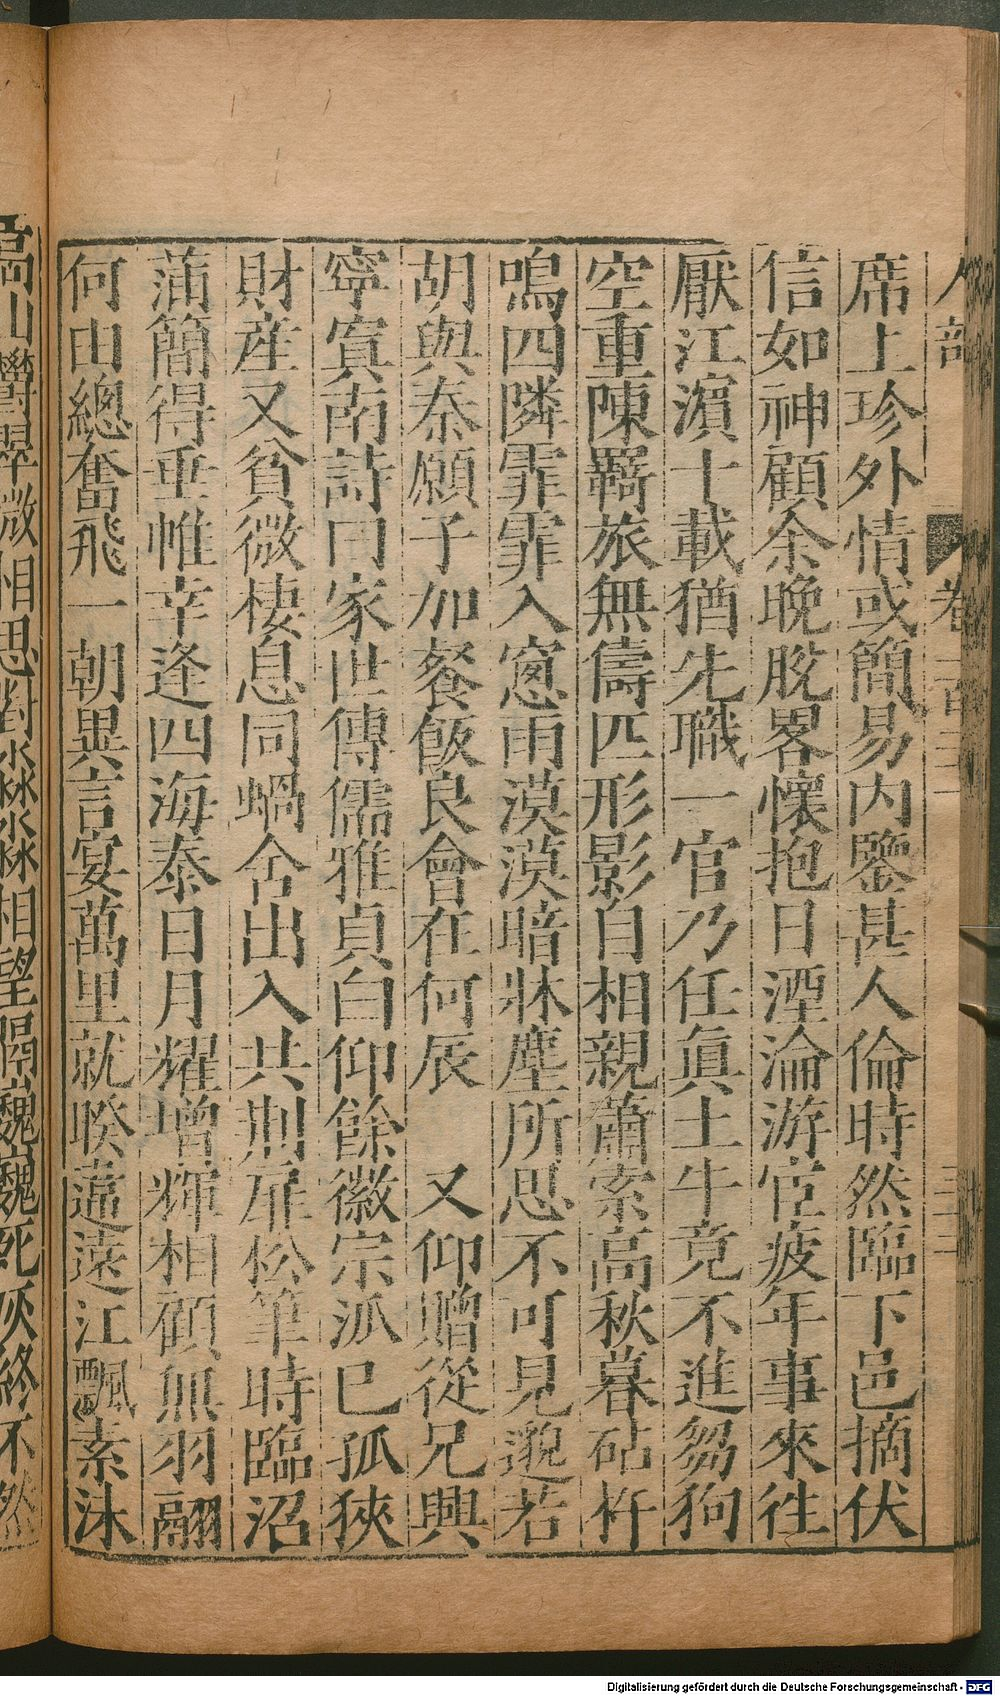 席上珍外情或簡易內鑒甚人倫時然臨下邑摘伏
信如神顧余晚脫畧懷抱日湮淪游宦疲年事來往
厭江濵十載猶先職一官乃任眞土牛竟不進芻狗
空重陳羇旅無儔匹形影自相親蕭索高秋暮砧杵
鳴四隣霏霏入窻雨漠漠暗牀塵所思不可見邈若
胡與秦願子加餐飯良會在何辰　又仰贈從兄興
寧寘南詩曰家世傳儒雅貞白仰餘徽宗派已孤狹
財産又貧微棲息同蝸舍出入共荆扉松筆時臨沼
蒲簡得垂帷幸逢四海泰日月耀增輝相顧無羽翮
何由總奮飛一朝異言宴萬里就暌違遠江飄素沫
高山鬱翠微相思對淼淼相望隔巍巍死灰終不然
人部
卷一百三十
三十二
Digitalisierung gefördert durch die Deutsche Forschungsgemeinschaft - DFG